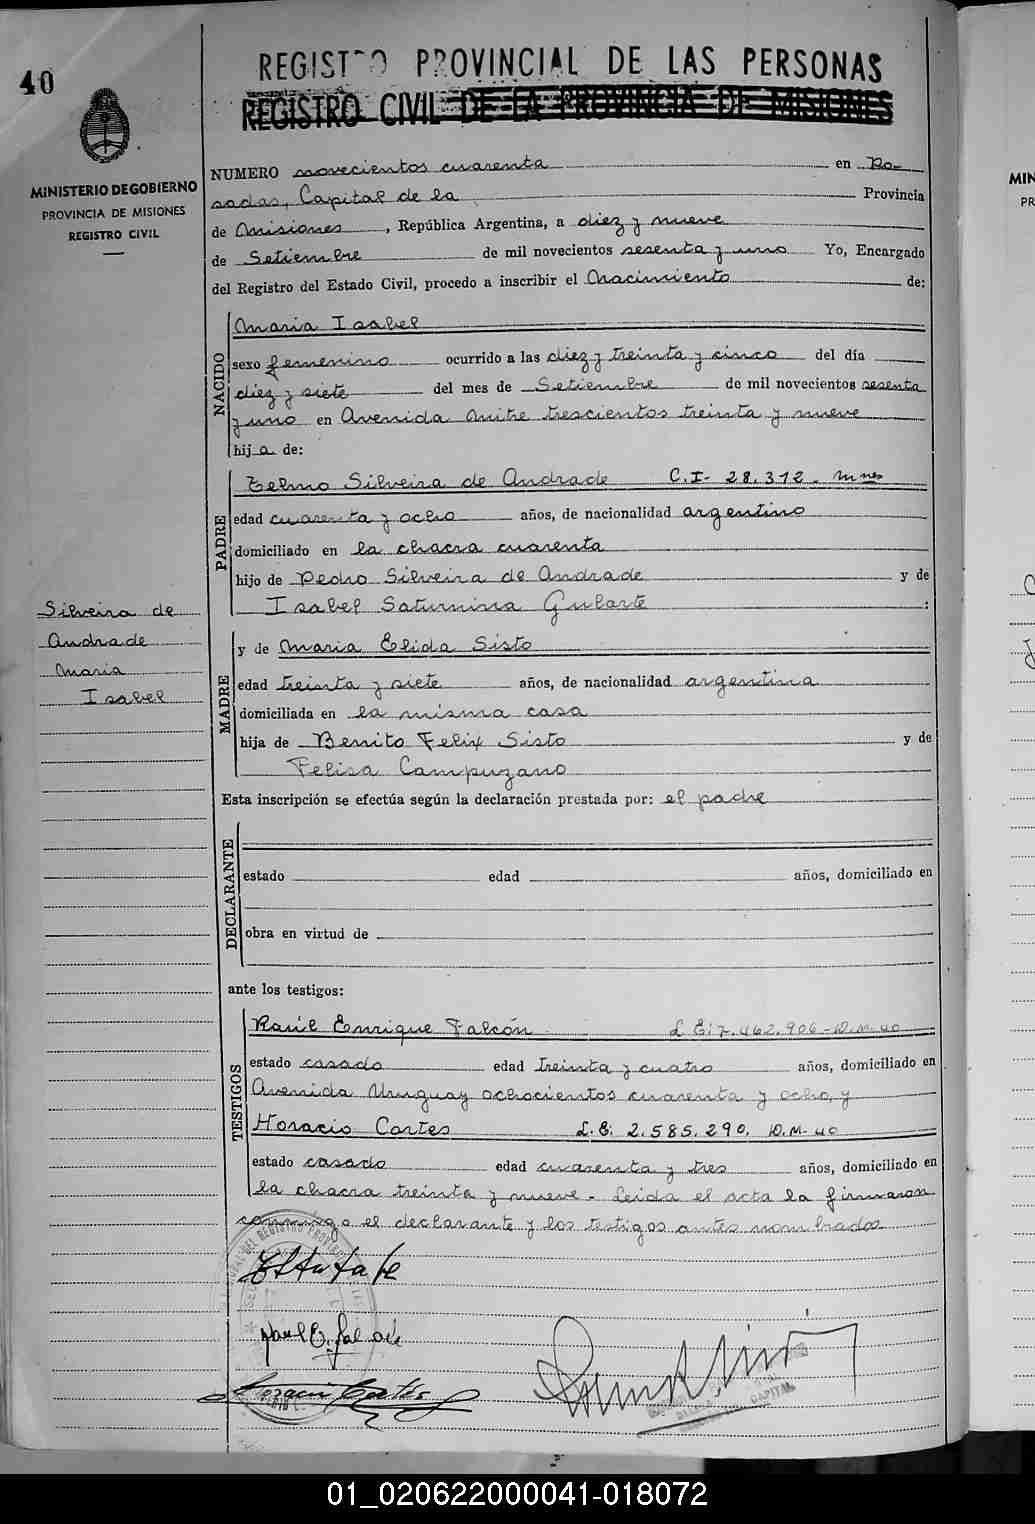 40
REGISTRO PROVINCIAL DE LAS PERSONAS
REGISTRO CIVIL DE LA PROVINCIA DE MISIONES
MINISTERIO DE GOBIERNO
PROVINCIA DE MISIONES
REGISTRO CIVIL
NUMERO novecientos cuarenta en Po-
sadas, Capital de la Provincia
de Misiones, República Argentina, a diez y nueve
de Setiembre de mil novecientos sesenta y uno Yo, Encargado
del Registro del Estado Civil, procedo a inscribir el Nacimiento de:
NACIDO
Maria Isabel
sexo femenino ocurrido a las diez y treinta y cinco del día
diez y siete del mes de Setiembre de mil novecientos sesenta
y uno en Avenida Mitre trescientos treinta y nueve
hija de:
PADRE
Telmo Silveira de Andrade C.I- 28.312. Mnes
edad cuarenta y ocho años, de nacionalidad argentino
domiciliado en la chacra cuarenta
hijo de Pedro Silveira de Andrade y de
Isabel Saturnina Gularte :
Silveira de
Andrade
Maria
Isabel
MADRE
y de Maria Elida Sisto
edad treinta y siete años, de nacionalidad argentina
domiciliada en la misma casa
hija de Benito Felix Sisto y de
Felisa Campuzano
Esta inscripción se efectúa según la declaración prestada por: el padre
DECLARANTE
estado edad años, domiciliado en
obra en virtud de
ante los testigos:
TESTIGOS
Raúl Enrique Falcón L.E: 7.462.906-D.M-40
estado casado edad treinta y cuatro años, domiciliado en
Avenida Uruguay ochocientos cuarenta y ocho, y
Horacio Cortes L.E: 2.585.290. D.M-40
estado casado edad cuarenta y tres años, domiciliado en
la chacra treinta y nueve. Leida el acta la firmaron
conmigo el declarante y los testigos antes nombrados
CAPITAL
MIN
PR
01_020622000041-018072